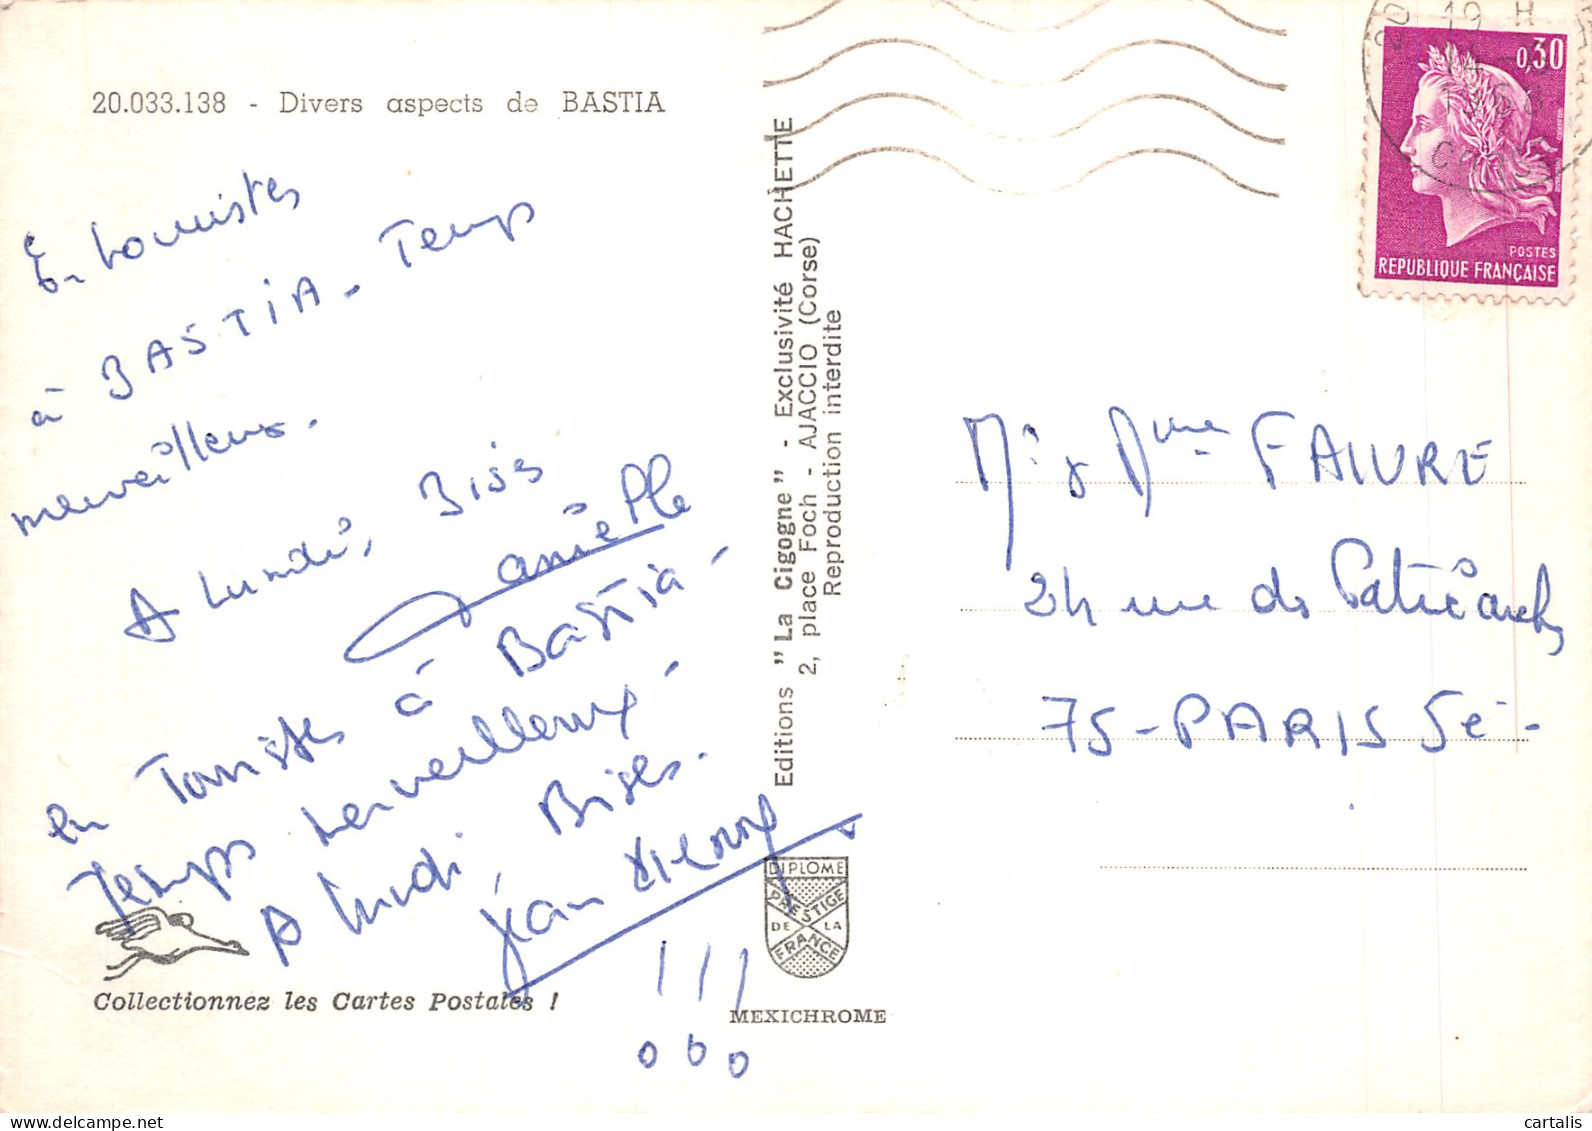 20.033.138 - Divers aspects de BASTIA
En touristes
à BASTIA - Temps
merveilleux.
A lundi, Bises
Danielle
en Touristes à Bastia -
Temps merveilleux -
A lundi, Bises.
Jean Pierre
!!!
Collectionnez les Cartes Postales !
Editions "La Cigogne" - Exclusivité HACHETTE
2, place Foch - AJACCIO (Corse)
Reproduction interdite
DIPLOME
PRESTIGE
DE LA
FRANCE
MEXICHROME
19 H
0,30
POSTES
REPUBLIQUE FRANÇAISE
Mr & Mme FAIVRE
24 rue du Patriarche
75-PARIS 5e -
cartalis